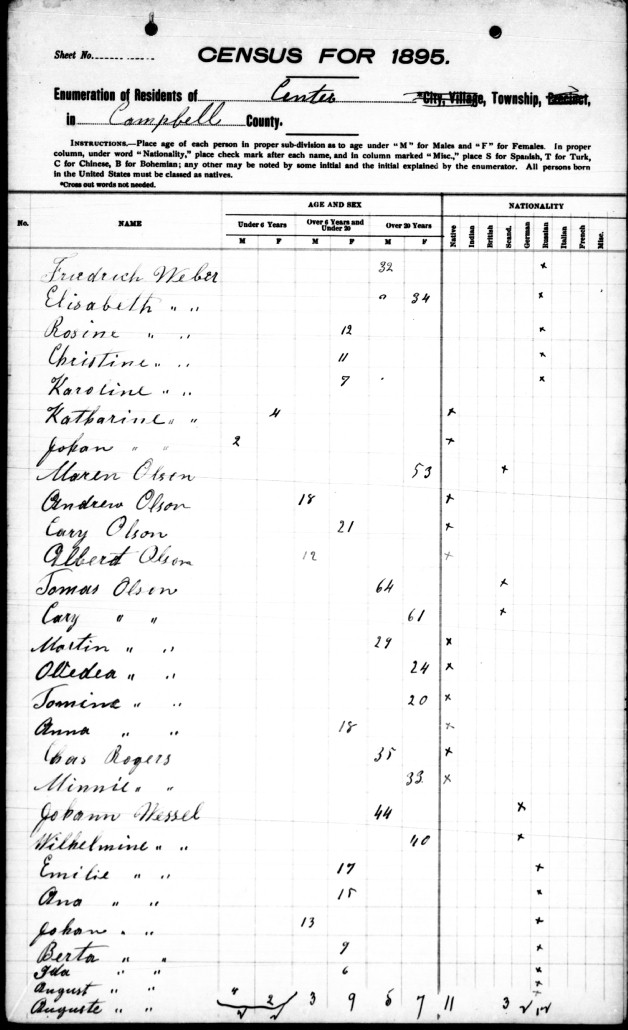 Sheet No.
CENSUS FOR 1895.
Enumeration of Residents of Center *City, Village, Township, Precinct,
in Campbell County.
INSTRUCTIONS.—Place age of each person in proper sub-division as to age under "M" for Males and "F" for Females. In proper
column, under word "Nationality," place check mark after each name, and in column marked "Misc.," place S for Spanish, T for Turk,
C for Chinese, B for Bohemian; any other may be noted by some initial and the initial explained by the enumerator. All persons born
in the United States must be classed as natives.
*Cross out words not needed.
AGE AND SEX NATIONALITY
No. NAME Under 6 Years Over 6 Years and Under 20 Over 20 Years Native Indian British Scand. German Russian Italian French Misc.
M F M F M F
Friedrich Weber 32 x
Elisabeth " " 34 x
Rosine " " 12 x
Christine " " 11 x
Karoline " " 7 x
Katharine " " 4 x
Johan " " 2 x
Maren Olsen 53 x
Andrew Olson 18 x
Cary Olson 21 x
Albert Olson 12 x
Tomas Olson 64 x
Cary " " 61 x
Martin " " 29 x
Oledea " " 24 x
Tomine " " 20 x
Anna " " 18 x
Chas Rogers 35 x
Minnie " " 33 x
Johann Wessel 44 x
Wilhelmine " " 40 x
Emilie " " 17 x
Ana " " 15 x
Johan " " 13 x
Berta " " 9 x
Ida " " 6 x
August " " 4 x
Auguste " " 2 3 9 5 7 11 3 2 12